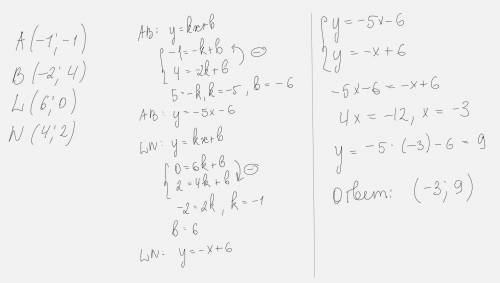 A(-1; -1)
B(-2; 4)
L(6; 0)
N(4; 2)
AB: y=kx+b
{-1=-k+b
4=-2k+b
5=-k, k=-5, b=-6
AB: y=-5x-6
LN: y=kx+b
{0=6k+b
2=4k+b
-2=2k, k=-1
b=6
LN: y=-x+6
{y=-5x-6
y=-x+6
-5x-6=-x+6
4x=-12, x=-3
y=-5·(-3)-6=9
Ответ: (-3; 9)